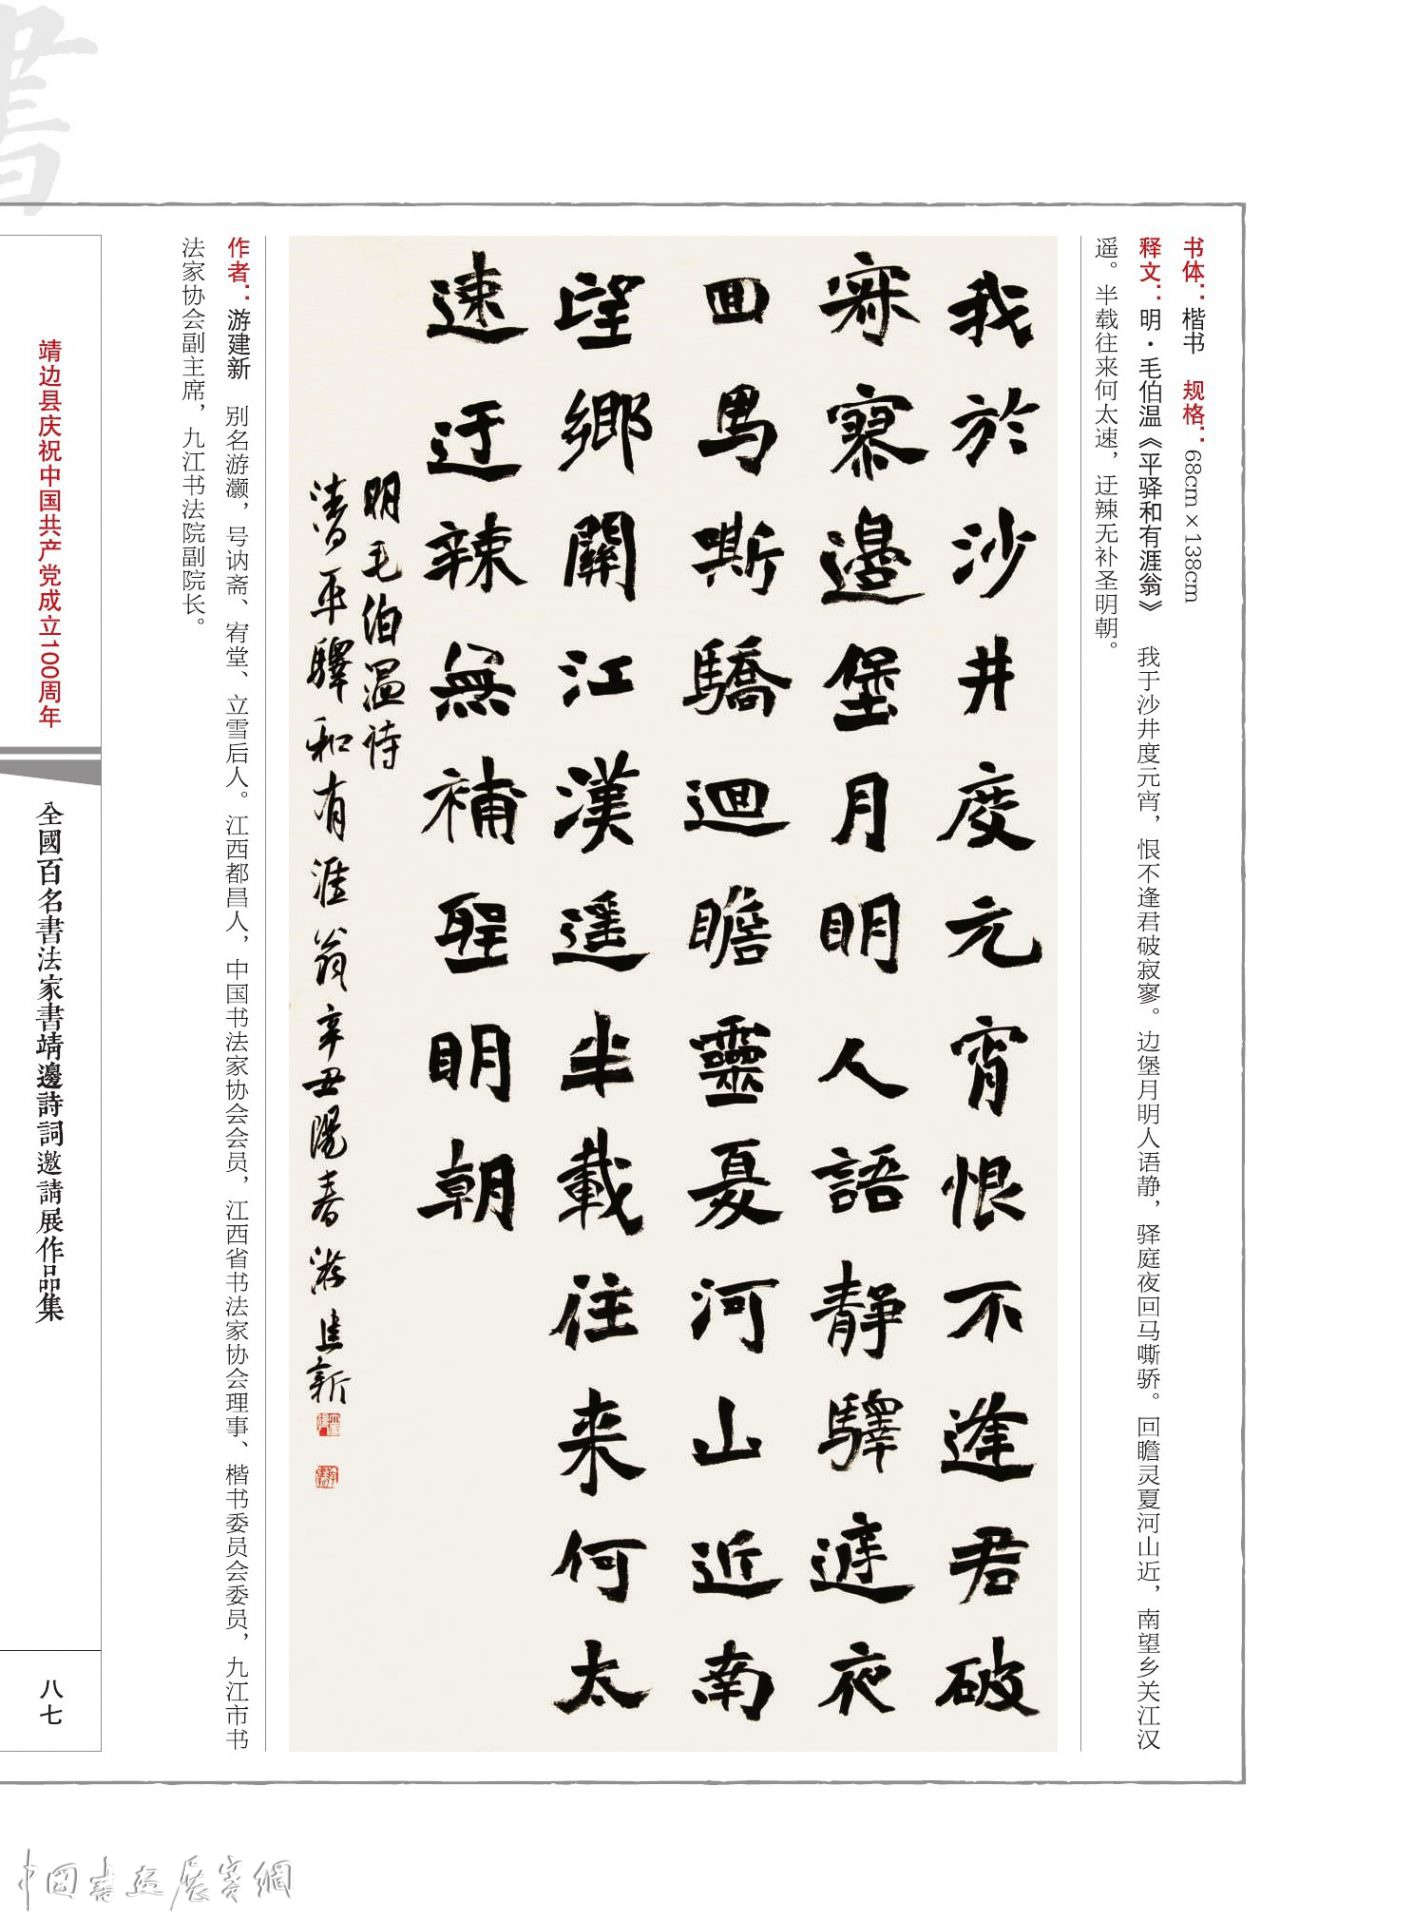 书体：楷书　规格：68cm×138cm
释文：明·毛伯温《平驿和有涯翁》　我于沙井度元宵，恨不逢君破寂寥。边堡月明人语静，驿庭夜回马嘶骄。回瞻灵夏河山近，南望乡关江汉
遥。半载往来何太速，迂辣无补圣明朝。
我於沙井度元宵恨不逢君破
寂寥邊堡月明人語靜驛遞夜
回馬嘶驕迴瞻靈夏河山近南
望鄉關江漢遥半載往来何太
速迂辣無補聖明朝
明毛伯温诗
清平驛和有涯翁辛丑陽春游建新
作者：游建新　别名游灏，号讷斋、宥堂、立雪后人。江西都昌人，中国书法家协会会员，江西省书法家协会理事、楷书委员会委员，九江市书
法家协会副主席，九江书法院副院长。
靖边县庆祝中国共产党成立100周年
全國百名書法家書靖邊詩詞邀請展作品集
八七
書
中國書画展賽網